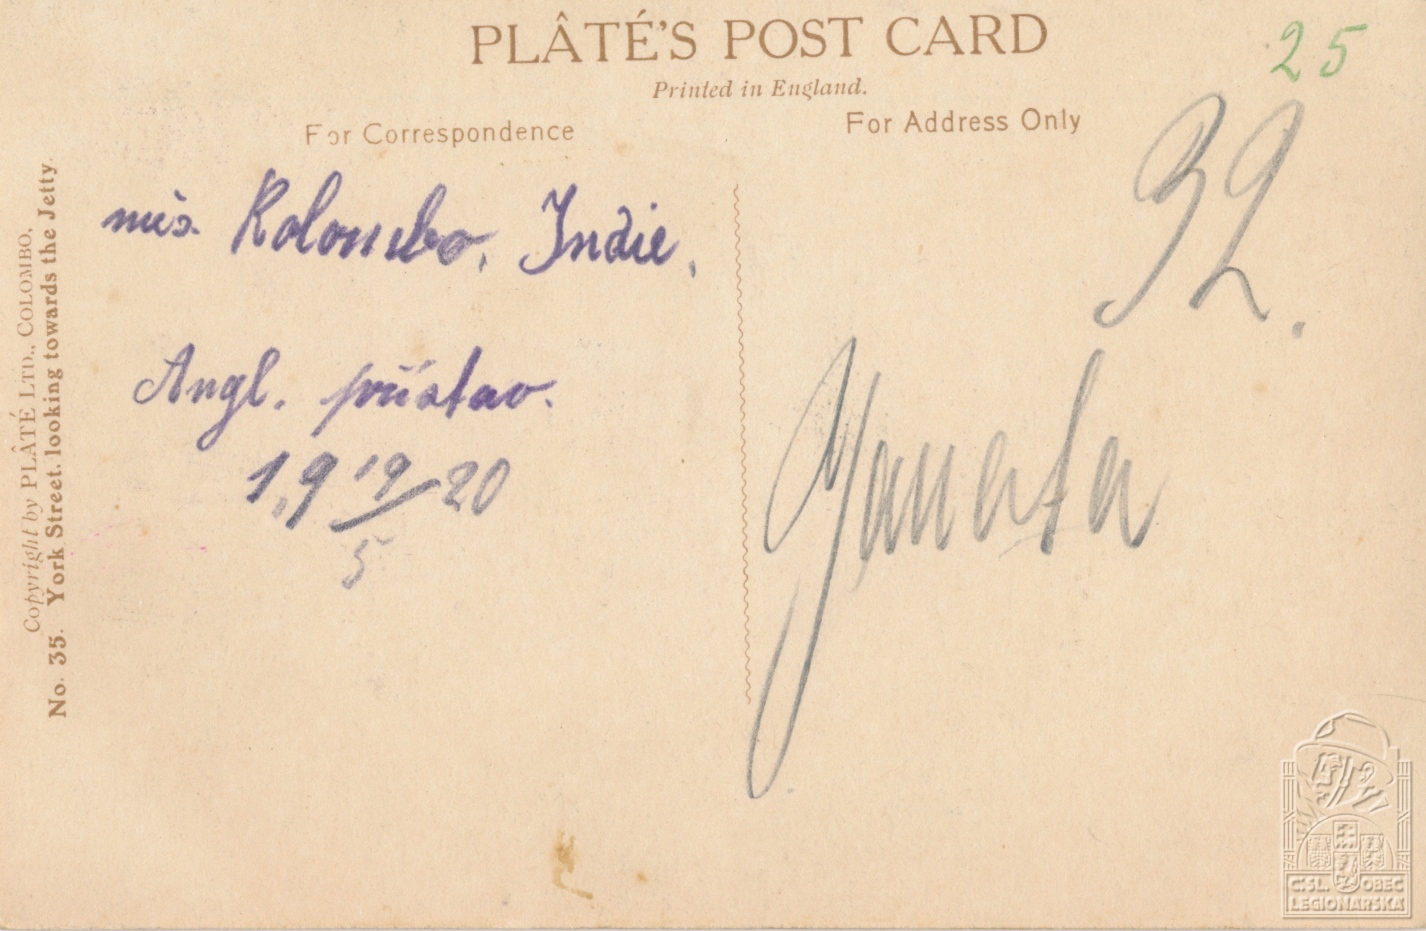 PLÂTÉ'S POST CARD
Printed in England.
25
For Correspondence
For Address Only
32.
Kolombo, Indie,
Angl. přístav.
1,9 19/5 20
Copyright by PLÂTÉ LTD., COLOMBO,
No. 35. York Street, looking towards the Jetty.
ČSL. OBEC
LEGIONÁŘSKÁ